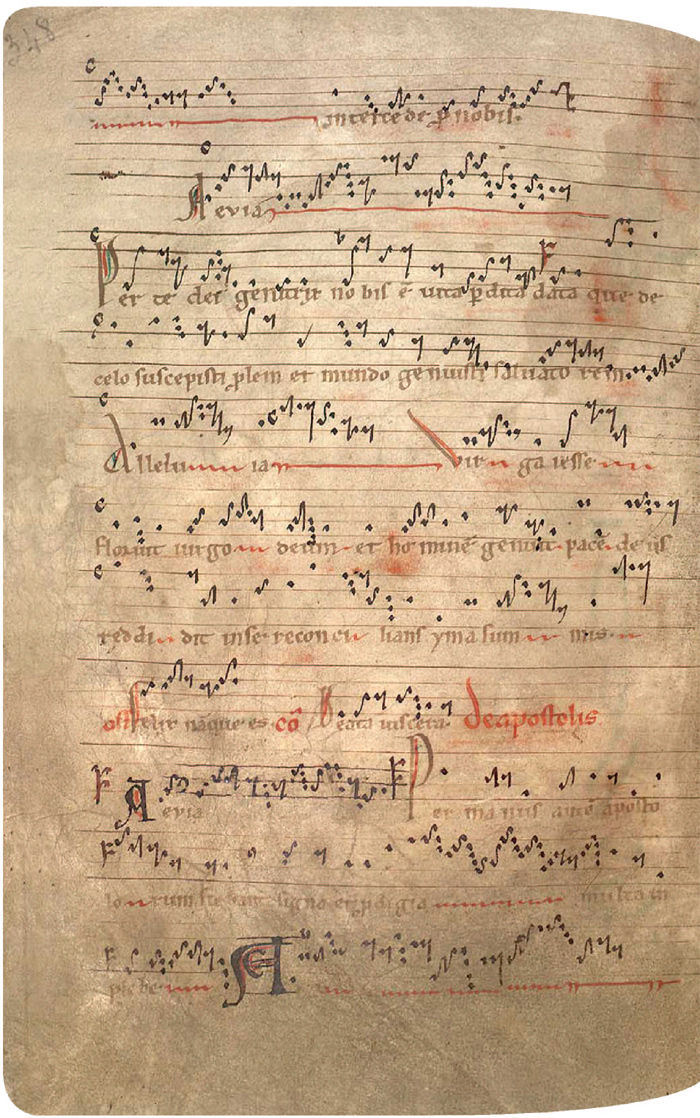 348
intercede p nobis.
Aevia
Per te dei genitrix nobis e vita pdita data que de
celo suscepisti plem et mundo genuisti salvatorem
Alleluia Virga iesse
floruit virgo deum et homine genuit pace deus
reddidit in se reconcilians yma summis
Off felix namque es co Beata viscera De apostolis
Aevia Per manus aute aposto
lorum fiebant signa et pdigia multa in
plebe A